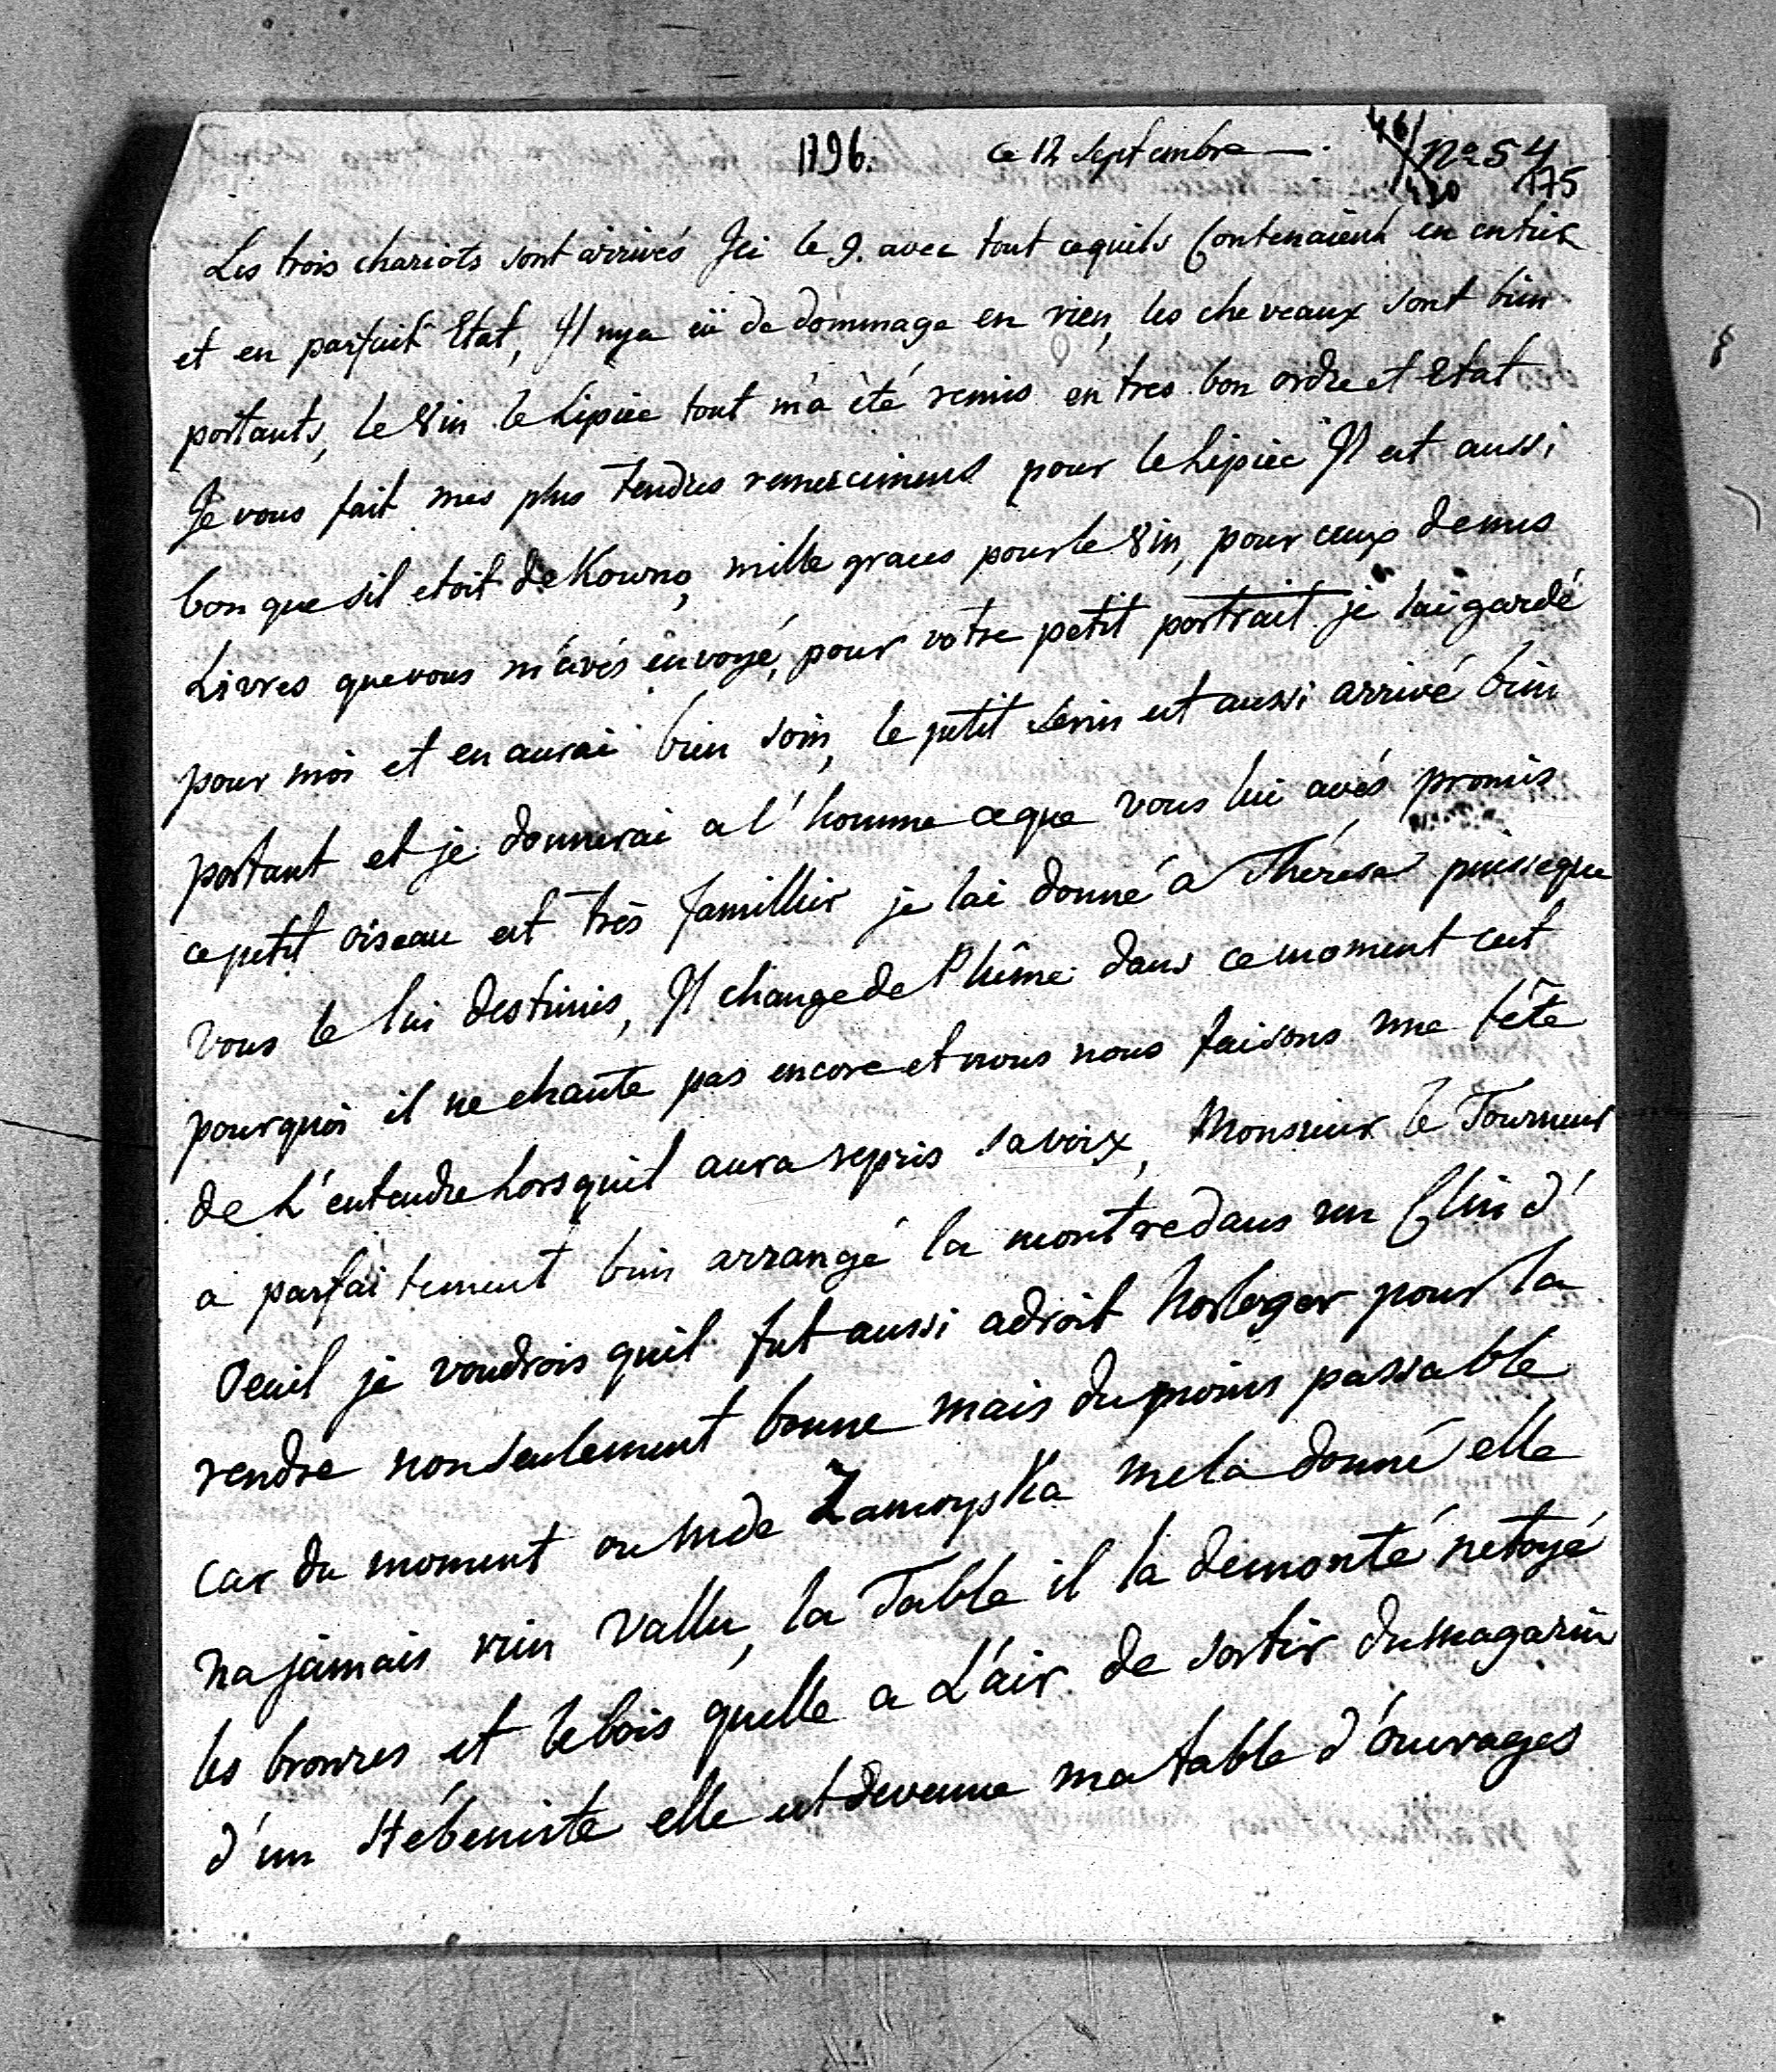 1796. ce 12 Septembre —. 46/ No 54
430 175
Les trois chariots sont arrivés Jci le 9. avec tout cequils Contenaient en entier
et en parfait Etat, Jl nya eü de dommage en rien, les cheveaux sont bien
portants, le Vin le Lipiec tout m'a été remis en tres bon ordre et Etat
Je vous fait mes plus tendres remerciments pour le Lipiec Jl est aussi
bon que sil etoit de Kowno, mille graces pour le Vin, pour ceux de mes
Livres que vous m'avés envoyé, pour votre petit portrait je lai gardé
pour moi et en aurai bien soin, le petit serin est aussi arrivé bien
portant et je donnerai a l'homme ceque vous lui avés promis
ce petit oiseau est très famillier je lai donné a Thérese puisseque
vous le lui destiniés, Jl change de Plûme dans ce moment cest
pourquoi il ne chante pas encore et nous nous faisons une fête
de L'entendre Lorsquil aura repris sa voix, Monsieur le Tourneur
a parfaitement bien arrangé la montre dans un Clin d'
Oeuil je voudrois quil fut aussi adroit horloger pour la
rendre non seulement bonne mais du moins passable
car du moment ou Mde Zamoyska me la donné elle
na jamais rien vallu, la Table il la demonté netoyé
les bronzes et le bois quelle a L'air de sortir du magazin
d'un Hébeniste elle est devenue ma table d'ouvrages